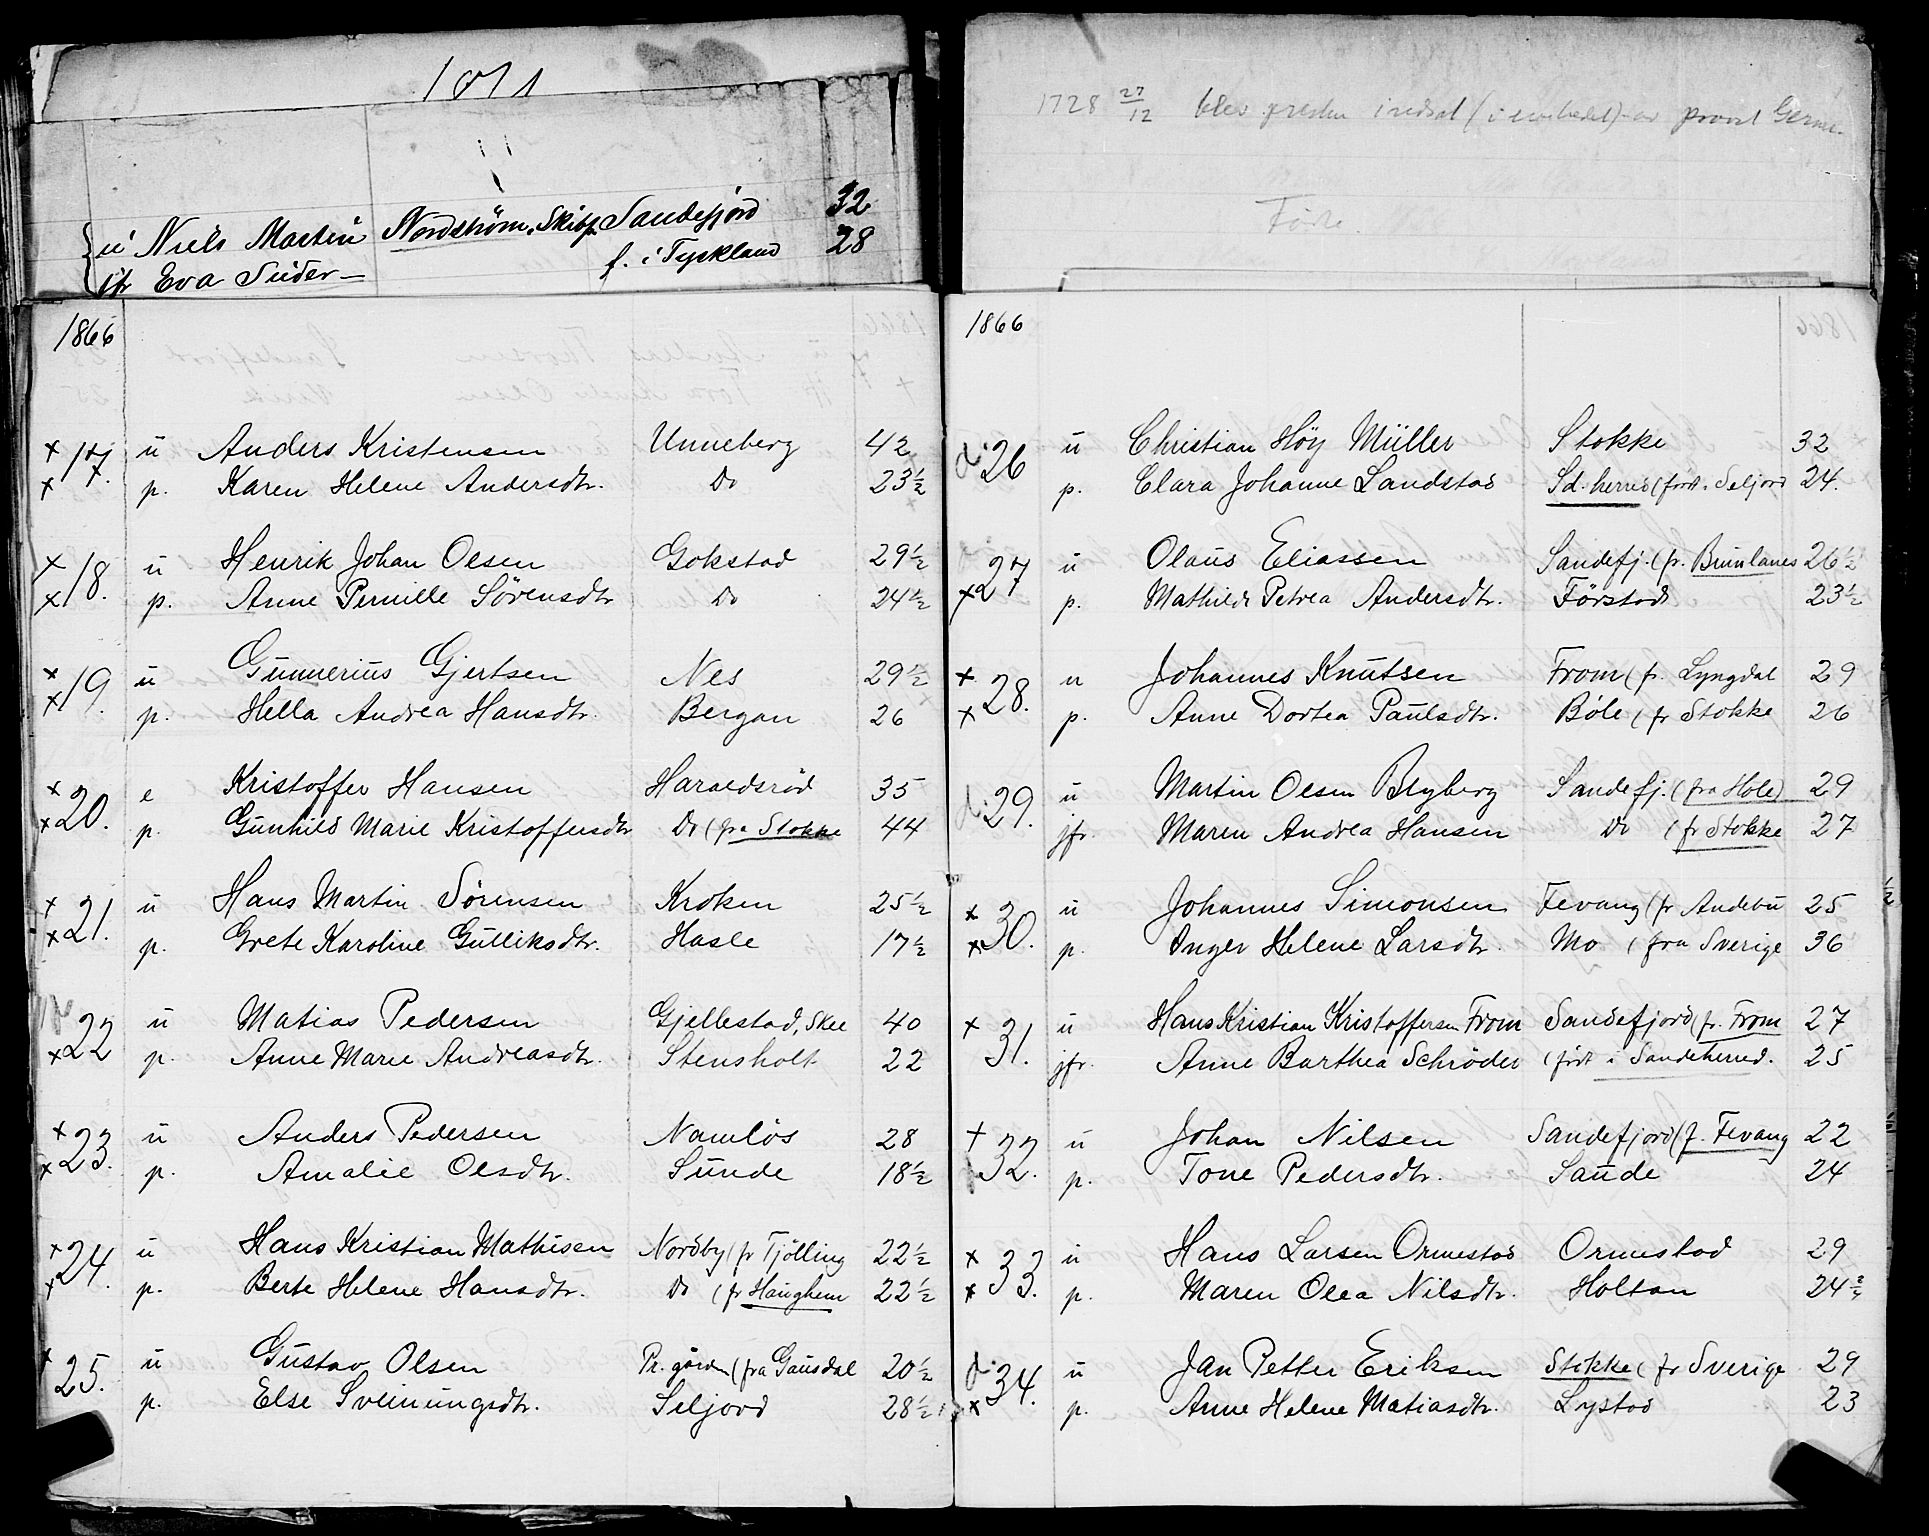 1871
ü Niels Martin Nordström, Skibsf. Sandefjord 32
jfr Eva Suder — f. i Tyskland 28
1866
17. ü Anders Kristensen Unneberg 42
p. Karen Helene Andersdtr. Do 23½
18. ü Henrik Johan Olsen Gokstad 29½
p. Anne Pernille Sörensdtr Do 24½
19. ü Gunnerius Gjertsen Nes 29½
p. Hella Andrea Hansdtr. Bergan 26
20. e Kristoffer Hansen Haraldsröd 35
p. Gunhild Marie Kristoffersdtr Do (fra Stokke 44
21. ü Hans Martin Sörensen Kroken 25½
p. Grete Karoline Gulliksdtr. Hasle 17½
22 ü Matias Pedersen Gjellestad, Skee 40
p. Anne Marie Andreasdtr. Stensholt 22
23. ü Anders Pedersen Namlös 28
p. Amalie Olsdtr. Sunde 18½
24. ü Hans Kristian Mathisen Nordby (fr Tjölling 22½
p. Berte Helene Hansdtr. Do (fr Haughem 22½
25. ü Gustav Olsen Pr. gården (fra Gausdal 20½
p. Else Sveinungsdtr. Seljord 28½
1728 27/12 blev presten indsat (i embedet) av provst
Födte.
1866
d. 26 ü Christian Höy Müller Stokke 32
p. Clara Johanne Landstad Sd. herred (född i Seljord 24.
27 ü Olaus Eliassen Sandefj. (fr. Brunlanes 26½
p. Mathilde Petrea Andersdtr. Förstad 23½
28. ü Johannes Knutsen From (fr. Lyngdal 29
p. Anne Dortea Paulsdtr. Böle (fr Stokke 26
d. 29. ü Martin Olsen Blyberg Sandefj. (fra Hole) 29
jfr. Maren Andrea Hansen Do (fr Stokke 27
30. ü Johannes Simonsen Fevang (fr Andebu 25
p. Inger Helene Larsdtr. Mo (fra Sverige 36
31. ü Hans Kristian Kristoffersen From Sandefjord (fr. From 27
jfr. Anne Barthea Schröder (födt i Sandeherred. 25
32. ü Johan Nilsen Sandefjord (f. Fevang 22
p. Tone Pedersdtr. Saude 24
33. ü Hans Larsen Ormestad Ormestad 29
p. Maren Olea Nilsdtr. Holtan 24
d. 34. ü Jan Petter Eriksen Stokke (fr Sverige 29
p. Anne Helene Matiasdtr. Lystad 23